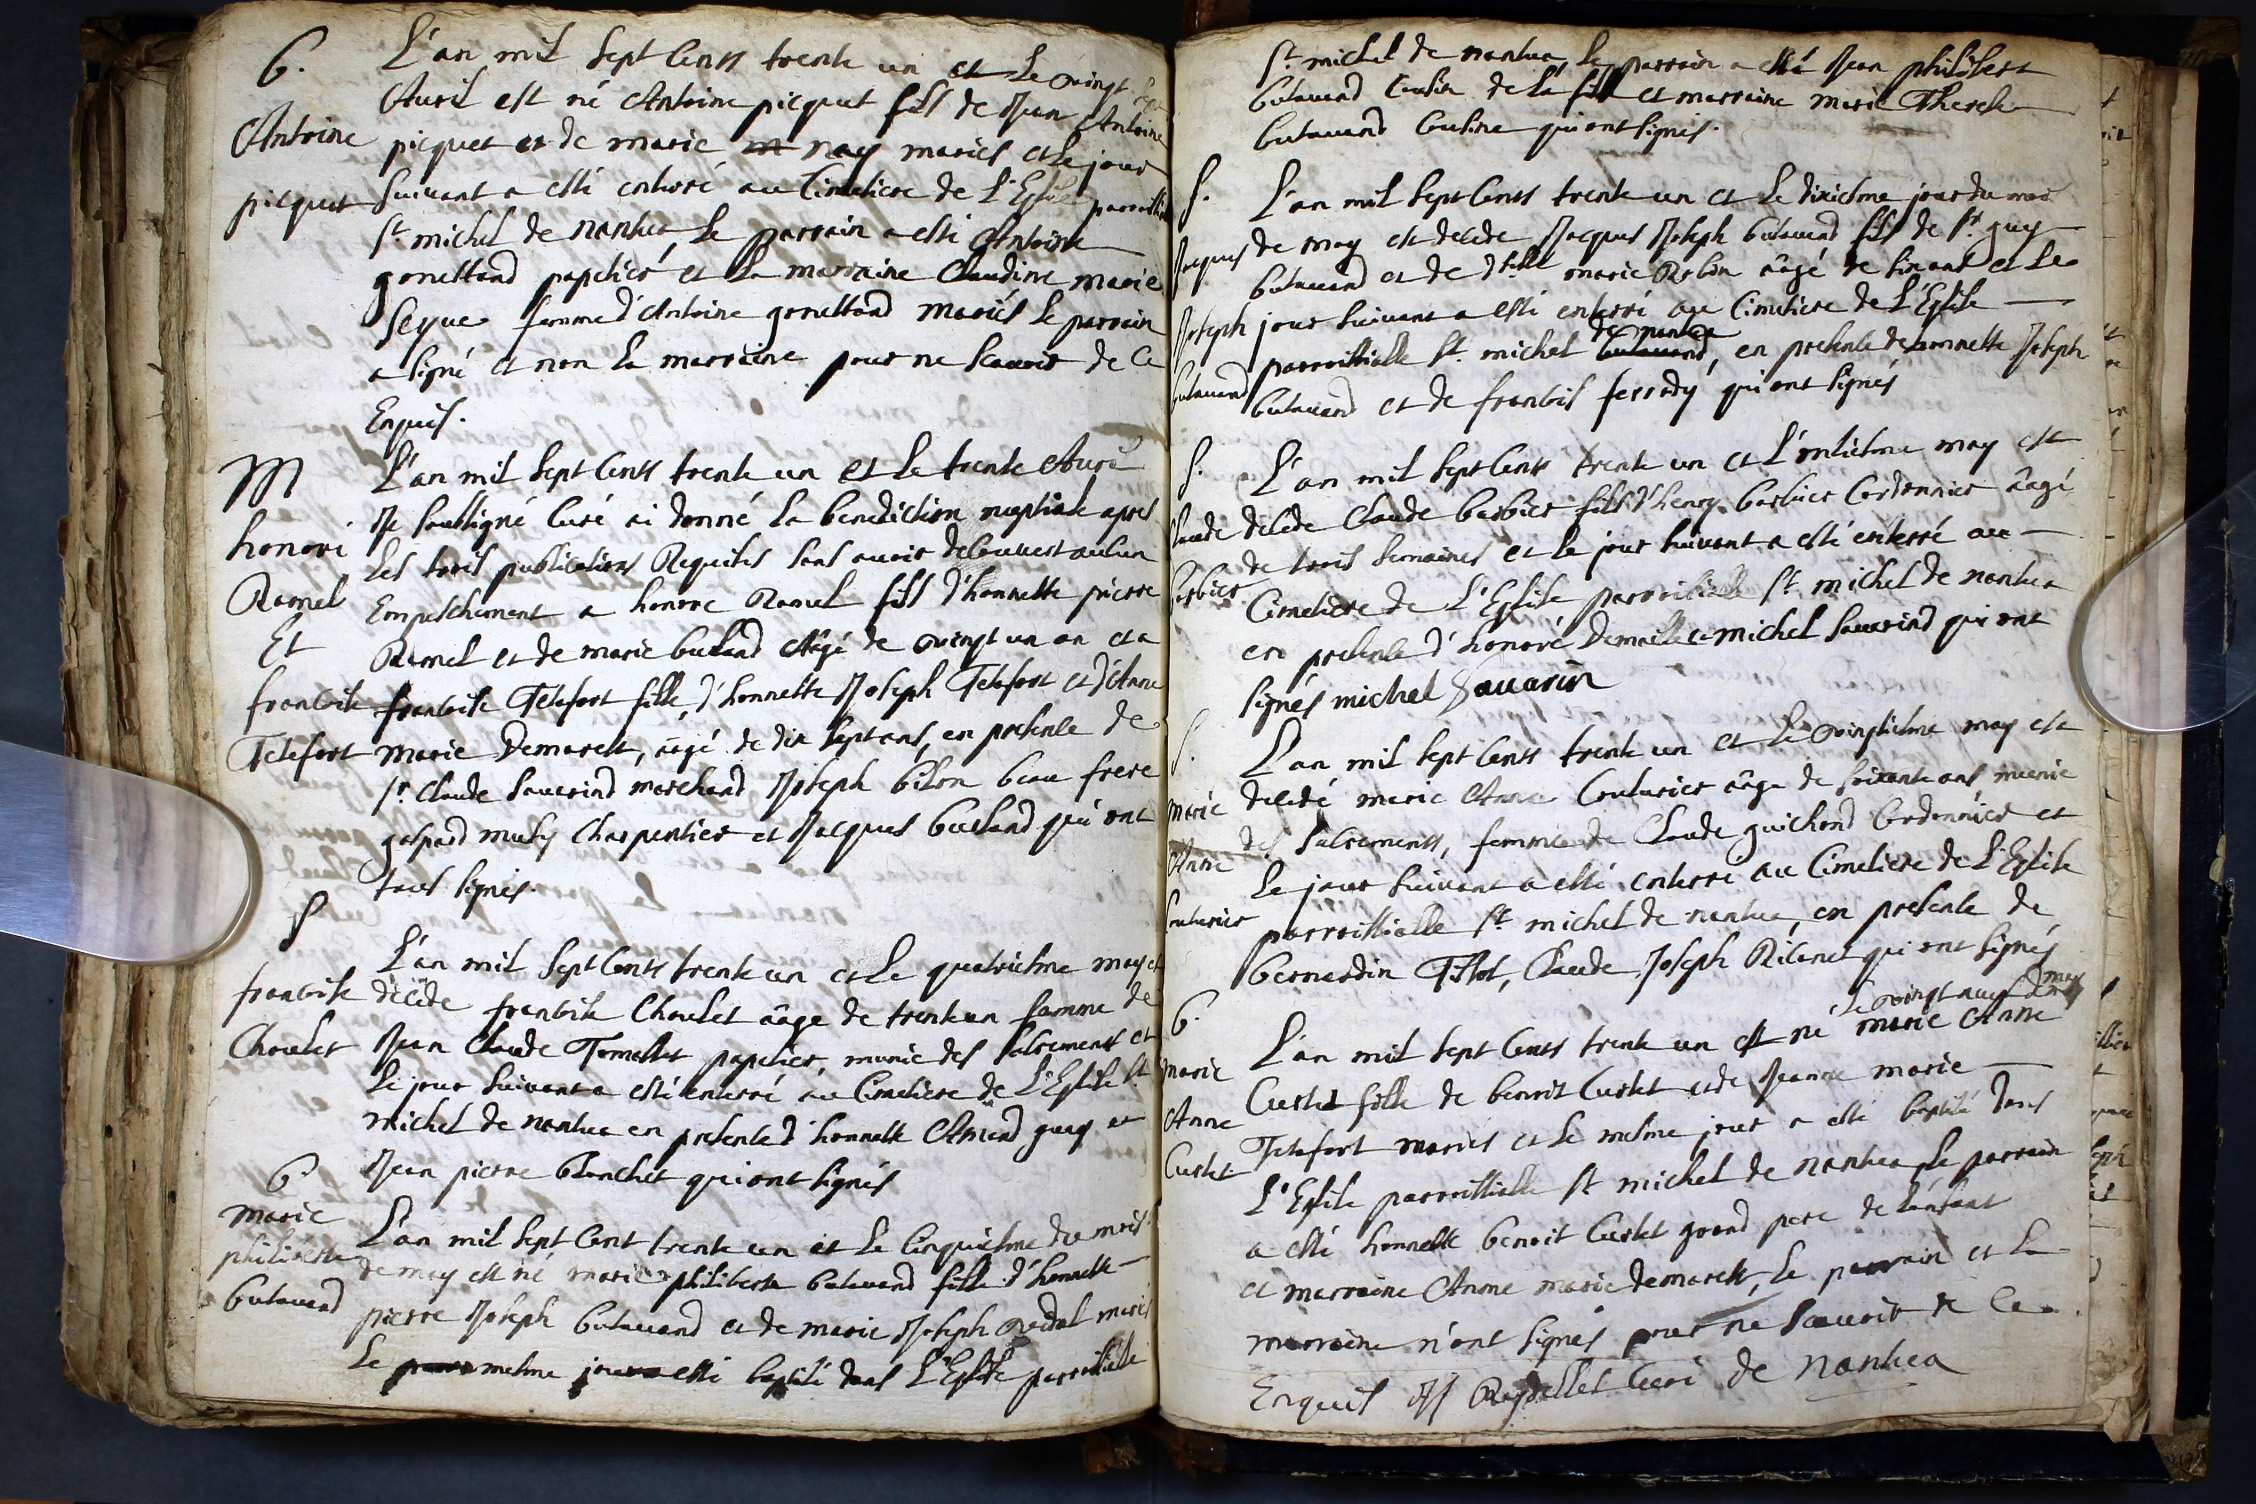 B.
Antoine
picquet
L'an mil sept Cents trente un et Le vingt sept
Auril est né Antoine picquet fils de Jean Antoine
picquet et de marie nay mariés et Le jour
suivant a esté enterré au Cimetiere de L'Eglise parroissielle
St. michel de nantua, Le parrain a esté Antoine
gonettand papetier et La marraine Claudine marie
Seque femme d'Antoine gonettand mariés Le parrain
a signé et non La marraine pour ne scavoir de Ce
Enquis.
M
honoré
Ramel
Et
francoise
Tetefort
L'an mil sept Cents trente un et Le trente Auril
Je soussigné Curé ai donné La benediction nuptiale apres
Les trois publications Requises sans avoir decouvert aulcun
Empeschement a honore Ramel fils d'honnette pierre
Ramel et de marie buland Aâgé de vingt un an et a
francoise Tetefort fille d'honnette Joseph Tetefort et d'Anne
Marie Demarest, aâgé de dix sept ans, en presence de
Sr. Claude Sauarind marchand Joseph bilon beau frere
gaspard musy Charpentier et Jacques buland qui ont
tous signés.
S
francoise
Choulet
L'an mil sept Cents trente un et Le quatriesme may est
décédé francoise Choulet aâge de trente un famme de
Jean Claude Tomellet papetier, munie des sacrements et
Le jour suivant a esté enterré au Cimetiere de L'Eglise St.
michel de nantua en presence d'honnette Amand guy et
Jean pierre blanchet qui ont signés
B.
marie
philiberte
butauand
L'an mil sept Cent trente un et Le Cinquiesme du mois
de may est né marie philiberte butauand fille d'honnette
pierre Joseph butauand et de marie Joseph Redal mariés
Le mesme jour a esté baptisé dans L'Eglise parroissielle
St. michel de nantua, Le parrain a esté Jean philibert
butauand Cousin de La fille et marraine marie Therese
butauand Cousine qui ont signés.
S.
Jacques
Joseph
butauand
L'an mil sept Cents trente un et Le dixiesme jour du mois
de may est decede Jacques Joseph butauand fils de Sr. guy
butauand et de dlle marie Robin aâgé de six ans et Le
jour suivant a esté enterré au Cimetiere de L'Eglise
de nantua
parroissialle St. michel butauand, en presence de honnette Joseph
butauand et de francois ferrady qui ont signés
S.
Claude
barbier
L'an mil sept Cents trente un et L'onziesme may est
decede Claude barbier fils d'henry barbier Cordonnier aâgé
de trois semaines et Le jour suivant a esté enterré au
Cimetiere de L'Eglise parroissialle St. michel de nantua
en presence d'honoré Demeille et michel Sauarind qui ont
signés michel Sauarin
S.
marie
Anne
Couturier
L'an mil sept Cents trente un et Le vingtiesme may est
decedé marie Anne Couturier aâge de soixante ans munie
des sacrements, femme de Claude guichond Cordonnier et
Le jour suivant a esté enterré au Cimetiere de L'Eglise
parroissialle St. michel de nantua, en presence de
bernardin Tissot, Claude Joseph Ribanet qui ont signés
B.
marie
Anne
Curtet
Le vingt neuf de may
L'an mil sept Cents trente un est né marie Anne
Curtet fille de benoit Curtet et de Jeanne marie
Tetefort mariés et Le mesme jour a esté baptisé dans
L'Eglise parroissialle St michel de nantua, Le parrain
a esté honnette benoit Curtet grand pere de L'enfant
et marraine Anne marie demarest, Le parrain et La
marraine n'ont signés pour ne scavoir de Ce
Enquis JJ Reydellet Curé de nantua